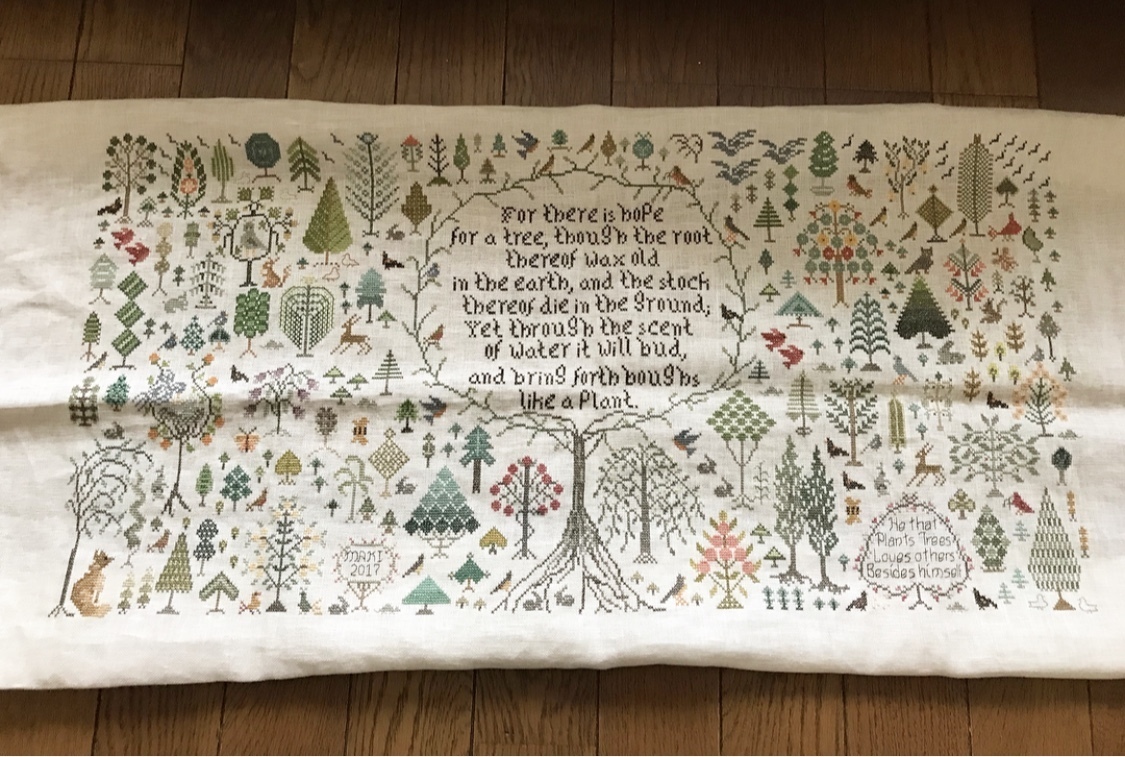 For there is hope
for a tree, though the root
thereof wax old
in the earth, and the stock
thereof die in the ground;
Yet through the scent
of water it will bud,
and bring forth boughs
like a Plant.
MAKI
2017
He that
Plants Trees
Loves others
Besides himself